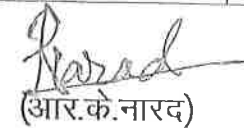 Narad
(आर.के.नारद)